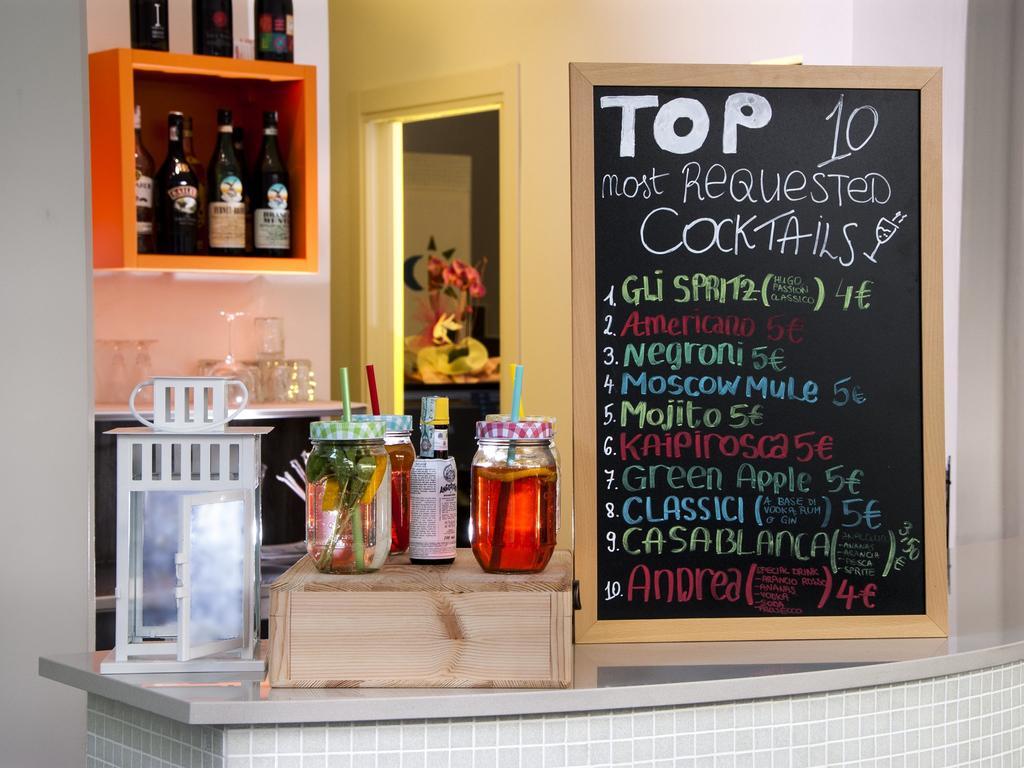 TOP 10
most REQUESTED
COCKTAILS
1. GLi SPRITZ (HUGO PASSION CLASSICO) 4€
2. Americano 5€
3. Negroni 5€
4. MOSCOW MULE 5€
5. Mojito 5€
6. KAIPIROSCA 5€
7. Green Apple 5€
8. CLASSICI (A BASE DI VODKA, RUM O GIN) 5€
9. CASABLANCA (ANALCOLICO -ANANAS -ARANCIA -PESCA -SPRITE) 3,50€
10. Andrea (SPECIAL DRINK -ARANCIO ROSSO -ANANAS -VODKA -SODA -PROSECCO) 4€
BAILEYS
FERNET-BRANCA
BRANCA
MENTA